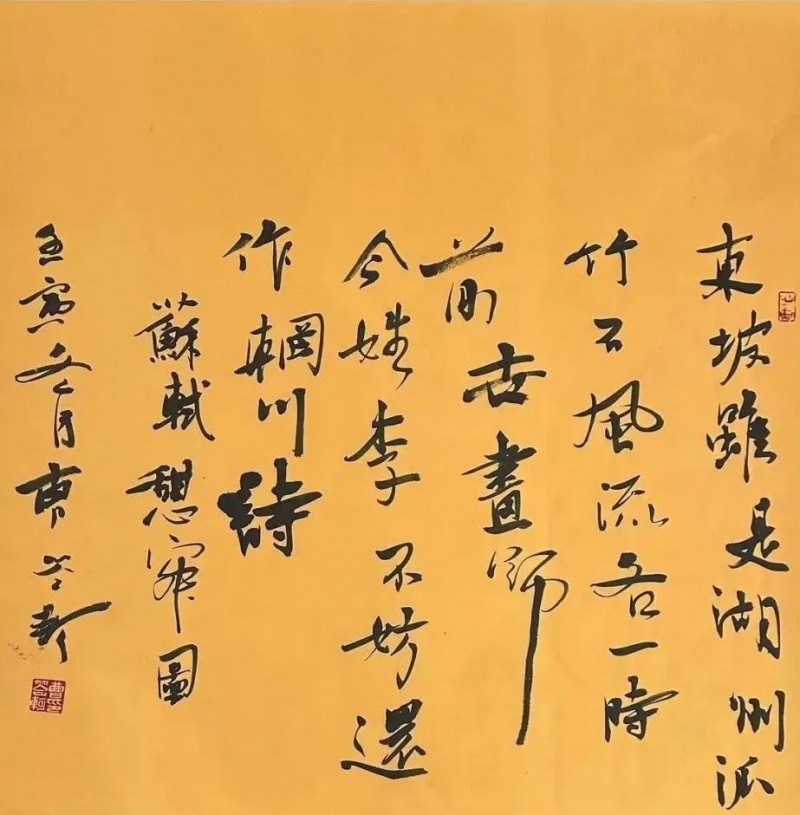 東坡雖是湖州派
竹石風流各一時
前世畫師
今姓李不妨還
作輞川詩
蘇軾憩寂圖
壬寅冬月曹